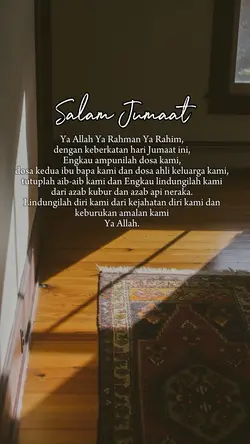 Salam Jumaat
Ya Allah Ya Rahman Ya Rahim,
dengan keberkatan hari Jumaat ini,
Engkau ampunilah dosa kami,
dosa kedua ibu bapa kami dan dosa ahli keluarga kami,
tutuplah aib-aib kami dan Engkau lindungilah kami
dari azab kubur dan azab api neraka.
Lindungilah diri kami dari kejahatan diri kami dan
keburukan amalan kami
Ya Allah.